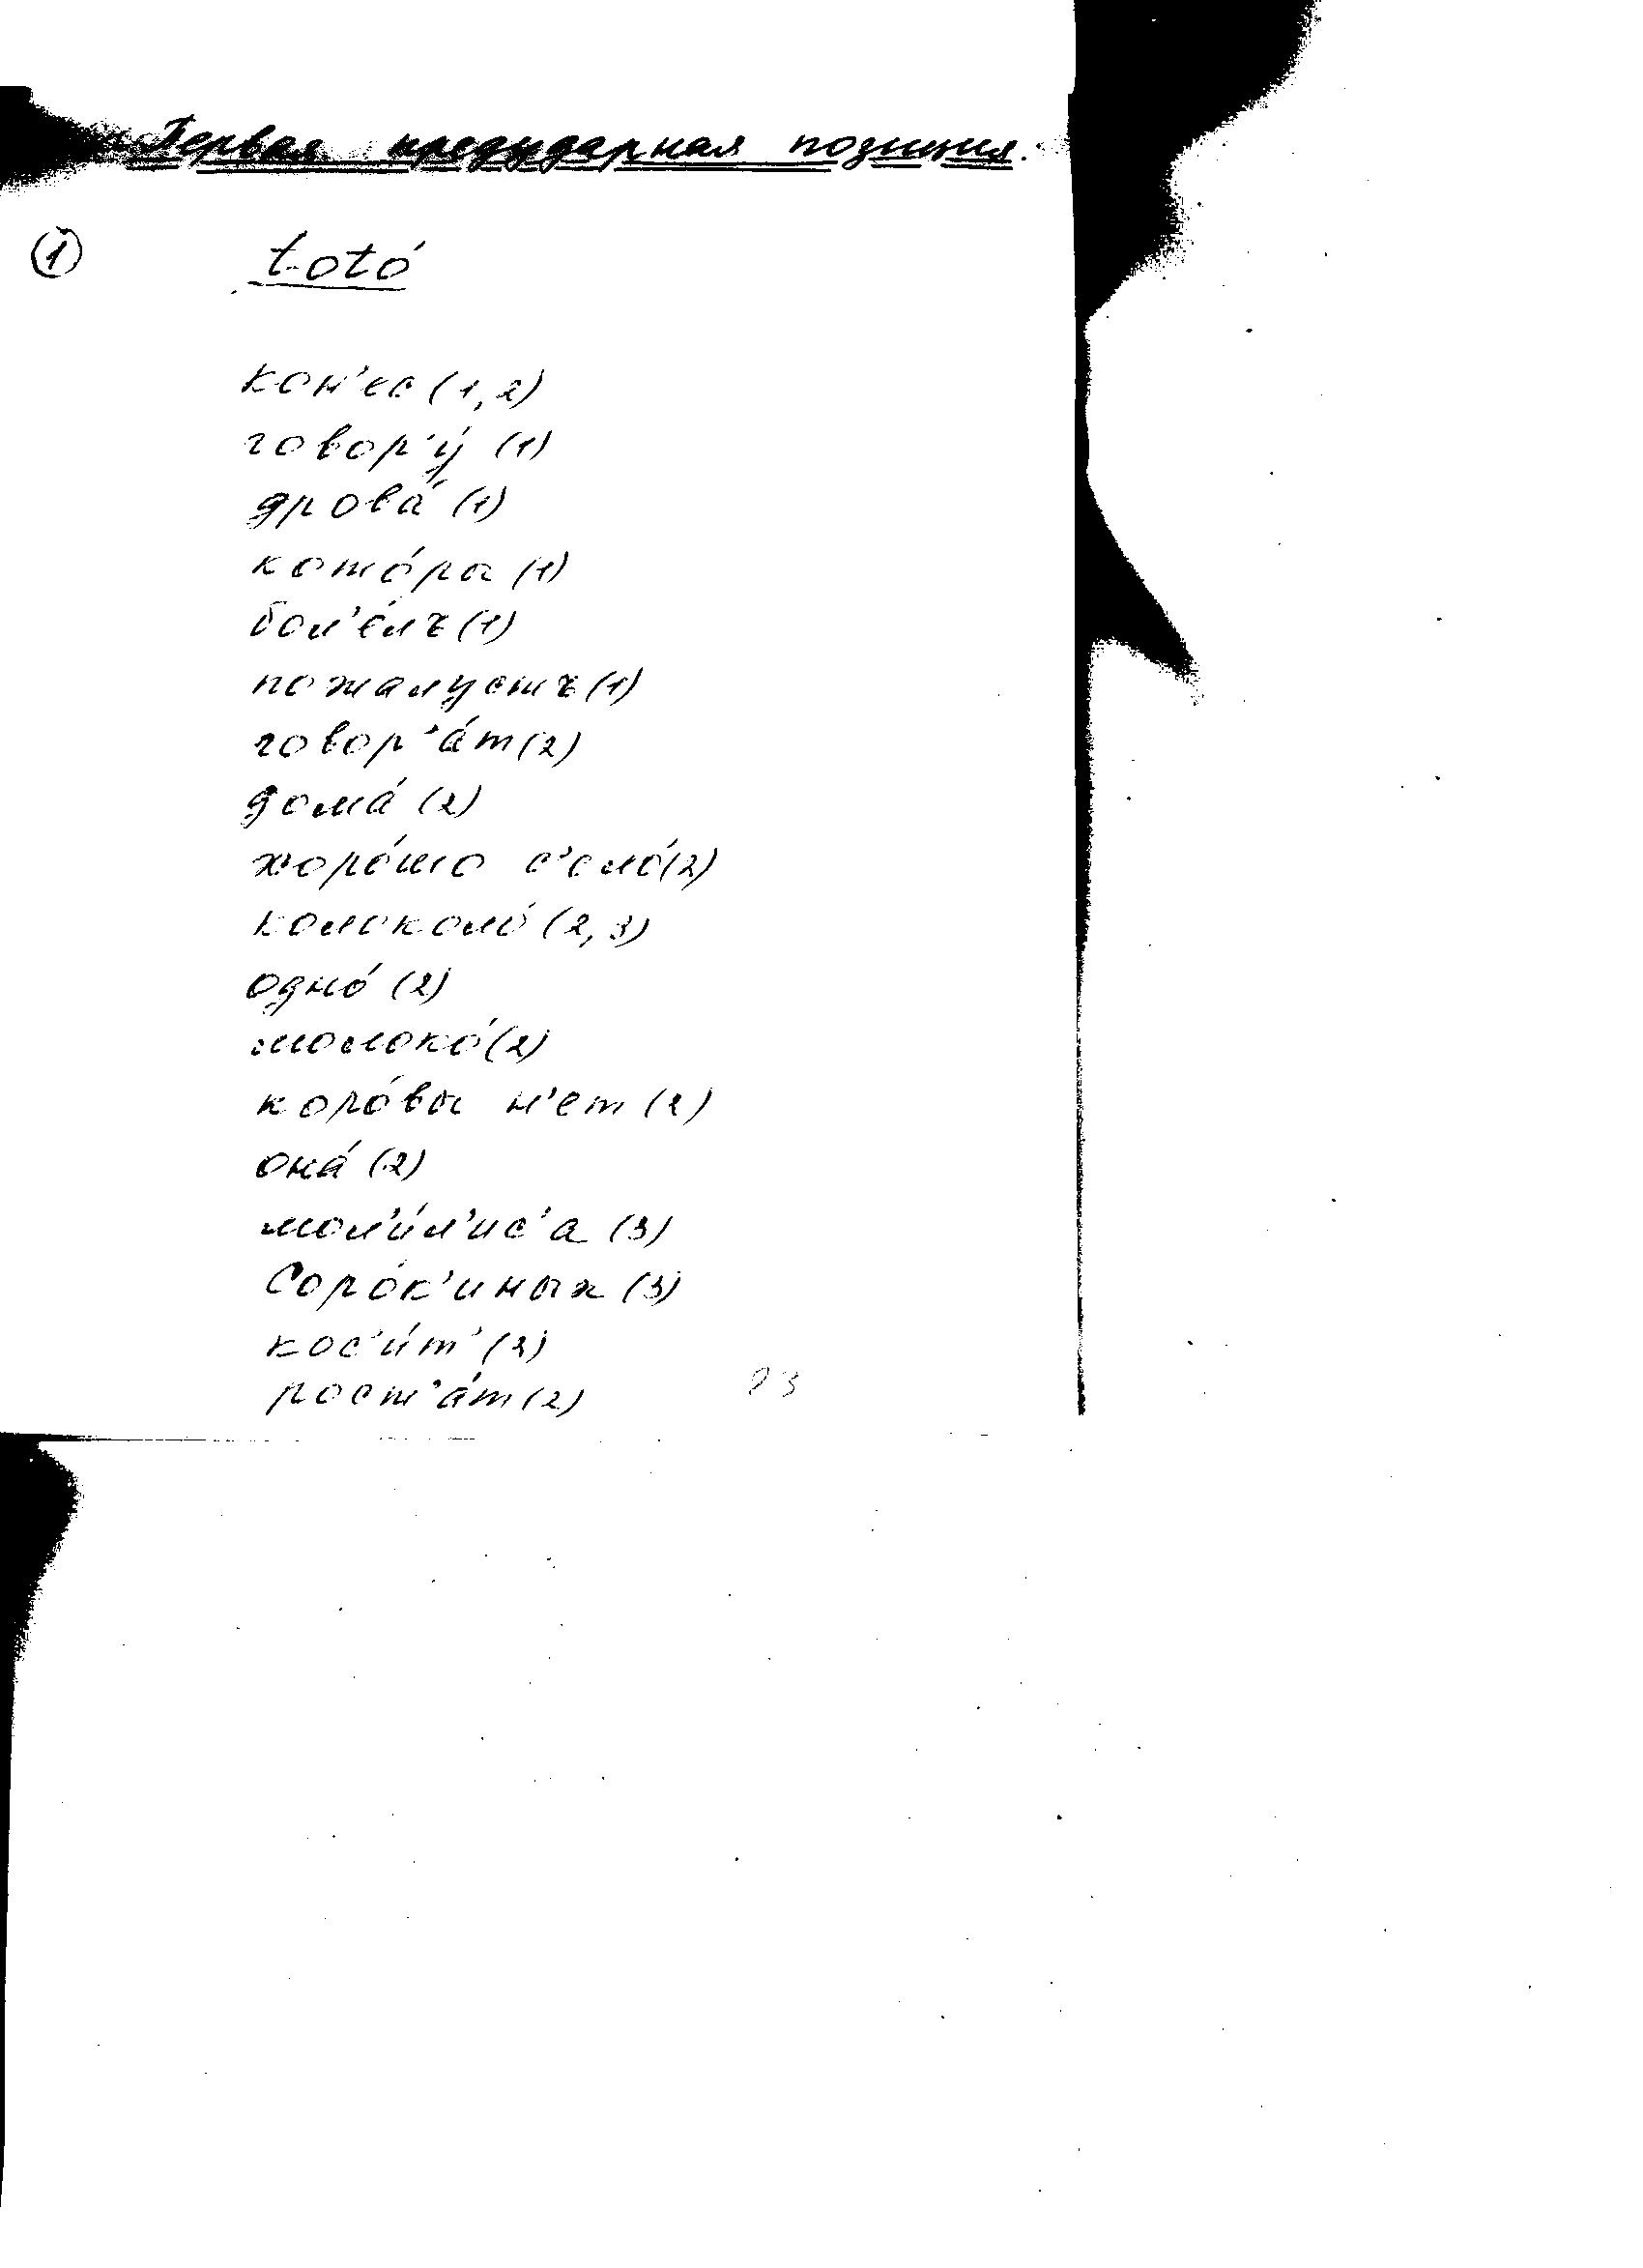 Первая предударная позиция.
① totó
кон'ес (1,2)
говор'у́ (1)
дрова́ (1)
кото́ры (1)
бол'е́лъ (1)
пожалустъ (1)
говор'а́т (2)
дома́ (2)
хоро́шо с'ело́ (2)
колоколо́ (2,3)
одно́ (2)
молоко́ (2)
коро́вы н'ет (2)
она́ (2)
мол'и́л'ис'а (3)
Соро́к'иных (3)
кос'и́т' (2)
рост'а́т (2)